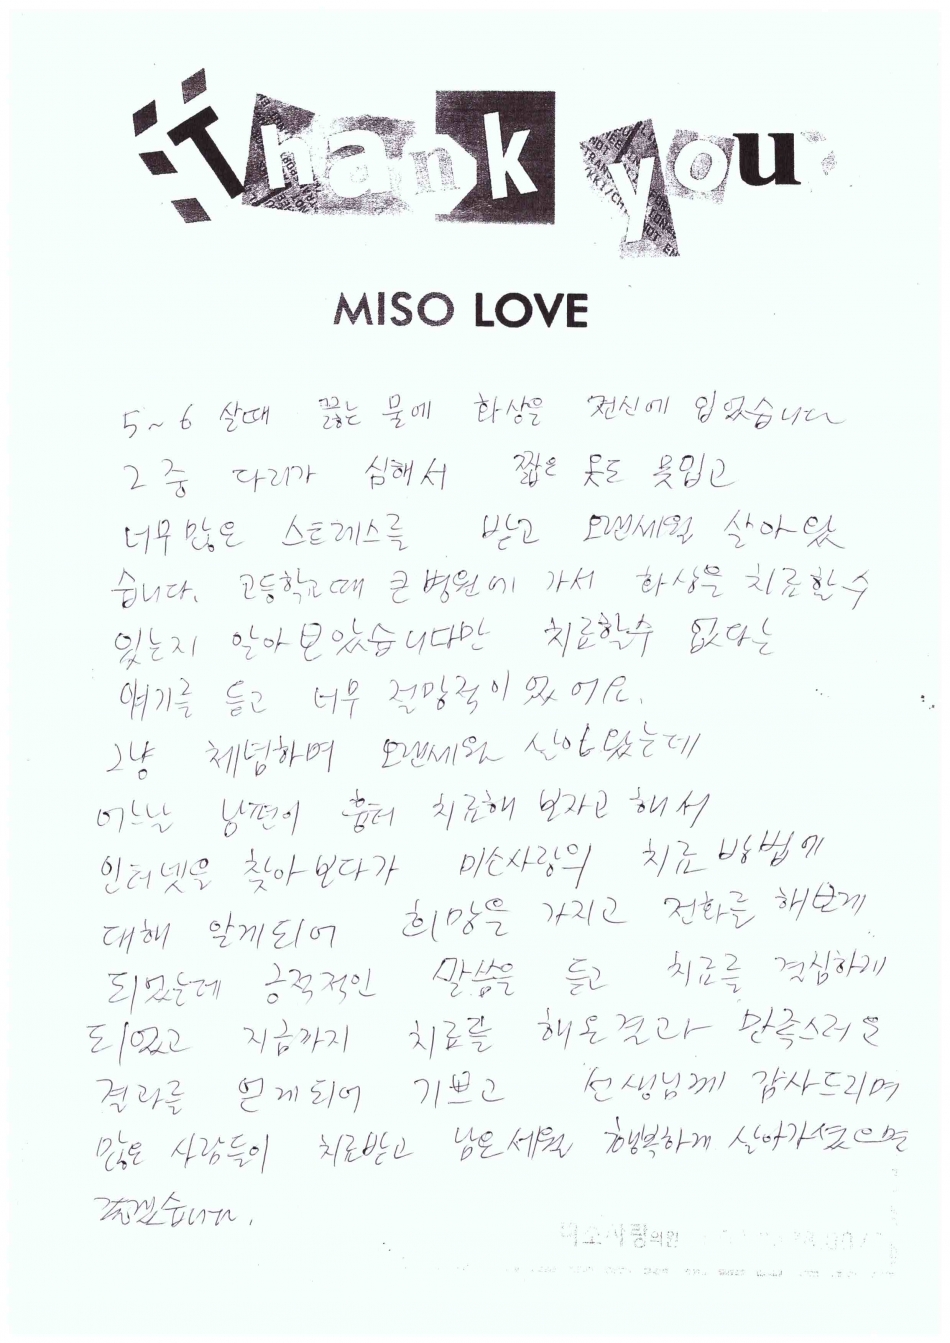 Thank you
MISO LOVE
5~6 살때 끓는 물에 화상을 전신에 입었습니다
그중 다리가 심해서 짧은 옷도 못입고
너무많은 스트레스를 받고 오랜세월 살아왔
습니다. 고등학교때 큰병원에 가서 화상을 치료할수
있는지 알아보았습니다만 치료할수 없다는
얘기를 듣고 너무 절망적이었어요.
그냥 체념하며 오랜세월 살아왔는데
어느날 남편이 흉터 치료해 보자고 해서
인터넷을 찾아보다가 미소사랑의 치료 방법에
대해 알게되어 희망을 가지고 전화를 해보게
되었는데 긍적적인 말씀을 듣고 치료를 결심하게
되었고 지금까지 치료를 해온결과 만족스러운
결과를 얻게되어 기쁘고 선생님께 감사드리며
많은 사람들이 치료받고 남은세월 행복하게 살아가셨으면
좋겠습니다.